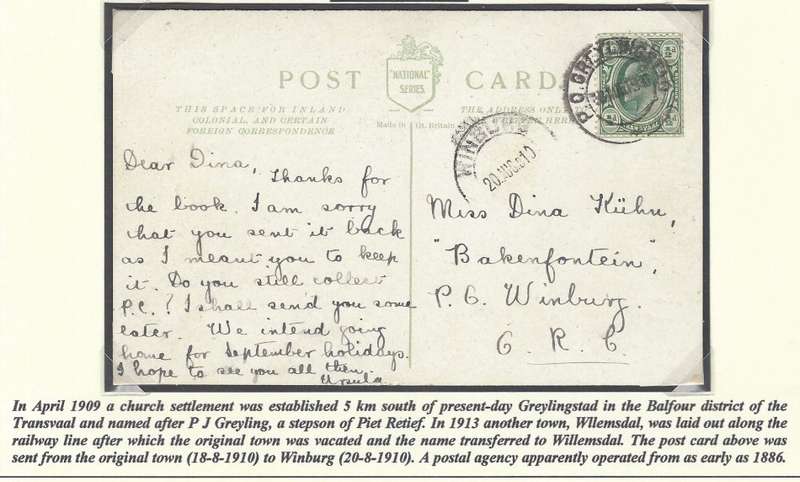 POST CARD
"NATIONAL"
SERIES
THIS SPACE FOR INLAND
COLONIAL, AND CERTAIN
FOREIGN CORRESPONDENCE
Made in Gt. Britain
THE ADDRESS ONLY
HERE
P.O. GREYLINGSTAD
WINBURG
20 AUG 10
Dear Dina,
Thanks for
the book. I am sorry
that you sent it back
as I meant you to keep
it. Do you still collect
p.c.? I shall send you some
later. We intend going
home for September holidays.
I hope to see you all then
Ursula
Miss Dina Kühn,
"Bakenfontein",
P.O. Winburg.
O. R. C.
In April 1909 a church settlement was established 5 km south of present-day Greylingstad in the Balfour district of the
Transvaal and named after P J Greyling, a stepson of Piet Retief. In 1913 another town, Wllemsdal, was laid out along the
railway line after which the original town was vacated and the name transferred to Willemsdal. The post card above was
sent from the original town (18-8-1910) to Winburg (20-8-1910). A postal agency apparently operated from as early as 1886.